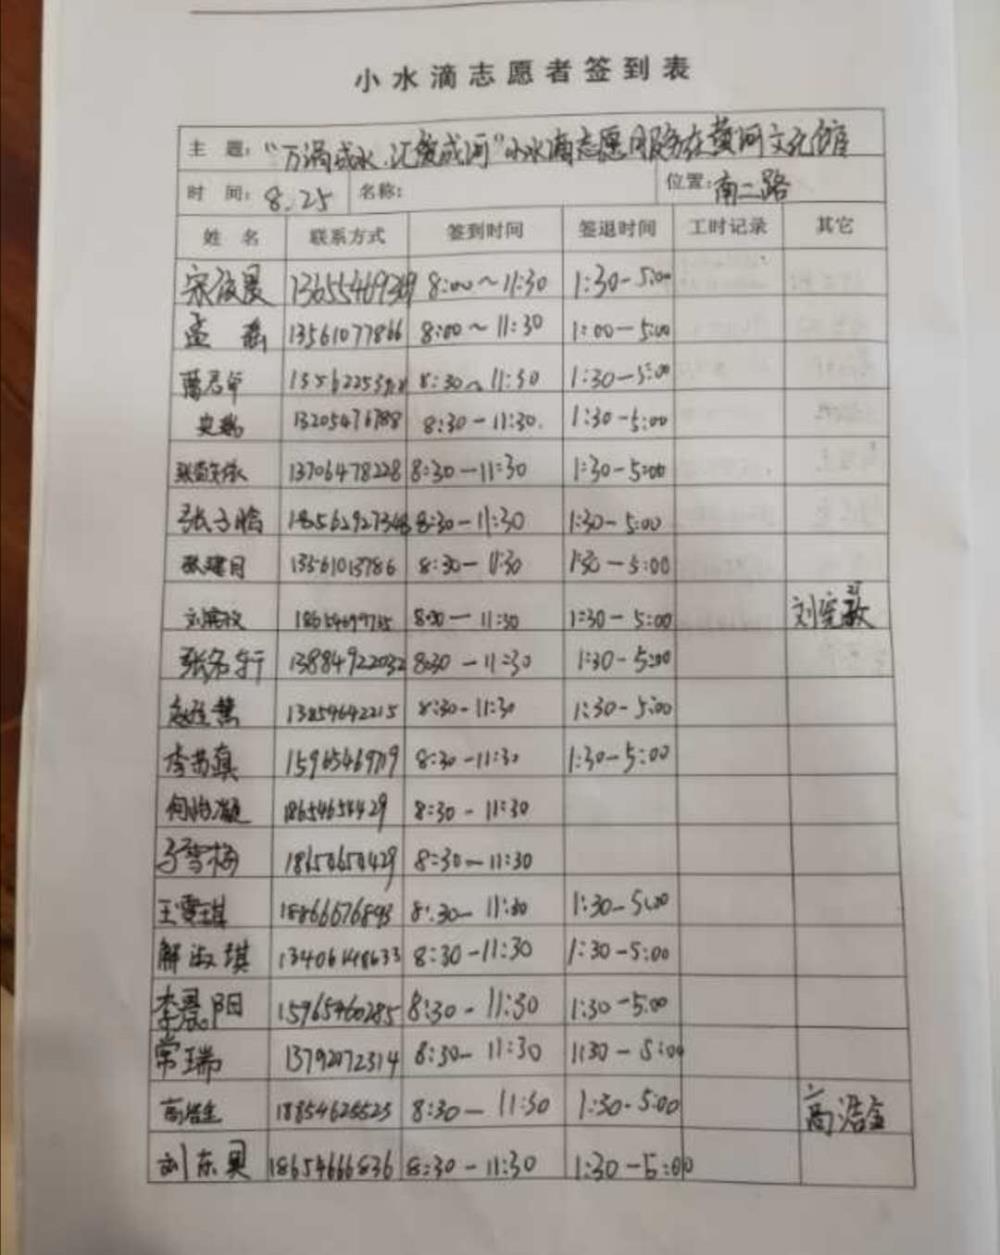 小水滴志愿者签到表
主 题: "万涓成水,汇聚成河"小水滴志愿服务在黄河文化馆
时 间: 8.25 名称: 位置: 南二路
姓 名 联系方式 签到时间 签退时间 工时记录 其它
8:00～11:30 1:30-5:00
孟 瑶 13561077866 8:00～11:30 1:00-5:00
8:30～11:30 1:30-5:00
安 13205476788 8:30-11:30. 1:30-5:00
13706478228 8:30-11:30 1:30-5:00
张子晗 8:30-11:30 1:30-5:00
张建国 13561013786 8:30-11:30 1:30-5:00
8:30-11:30 1:30-5:00 刘宪敏
13884922032 8:30-11:30 1:30-5:00
13854642215 8:30-11:30 1:30-5:00
8:30-11:30 1:30-5:00
何怡凝 8:30-11:30
8:30-11:30
王雪琪 18866676893 8:30-11:30 1:30-5:00
解淑琪 13406148633 8:30-11:30 1:30-5:00
李晨阳 15965460285 8:30-11:30 1:30-5:00
常瑞 13792072314 8:30-11:30 1:30-5:00
高浩金 18854626523 8:30-11:30 1:30-5:00 高浩金
刘东昊 18654666836 8:30-11:30 1:30-5:00